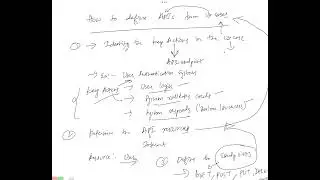 How to define APIs from Use cases
① → Identify the key Actions in the use case
API endpoint
→ Ex:- User Authentication System
Key Actions → User login
→ System validates creds
→ System responds
② Determine the API resources
Resource: User
③ Define the
GET, POST, PUT,